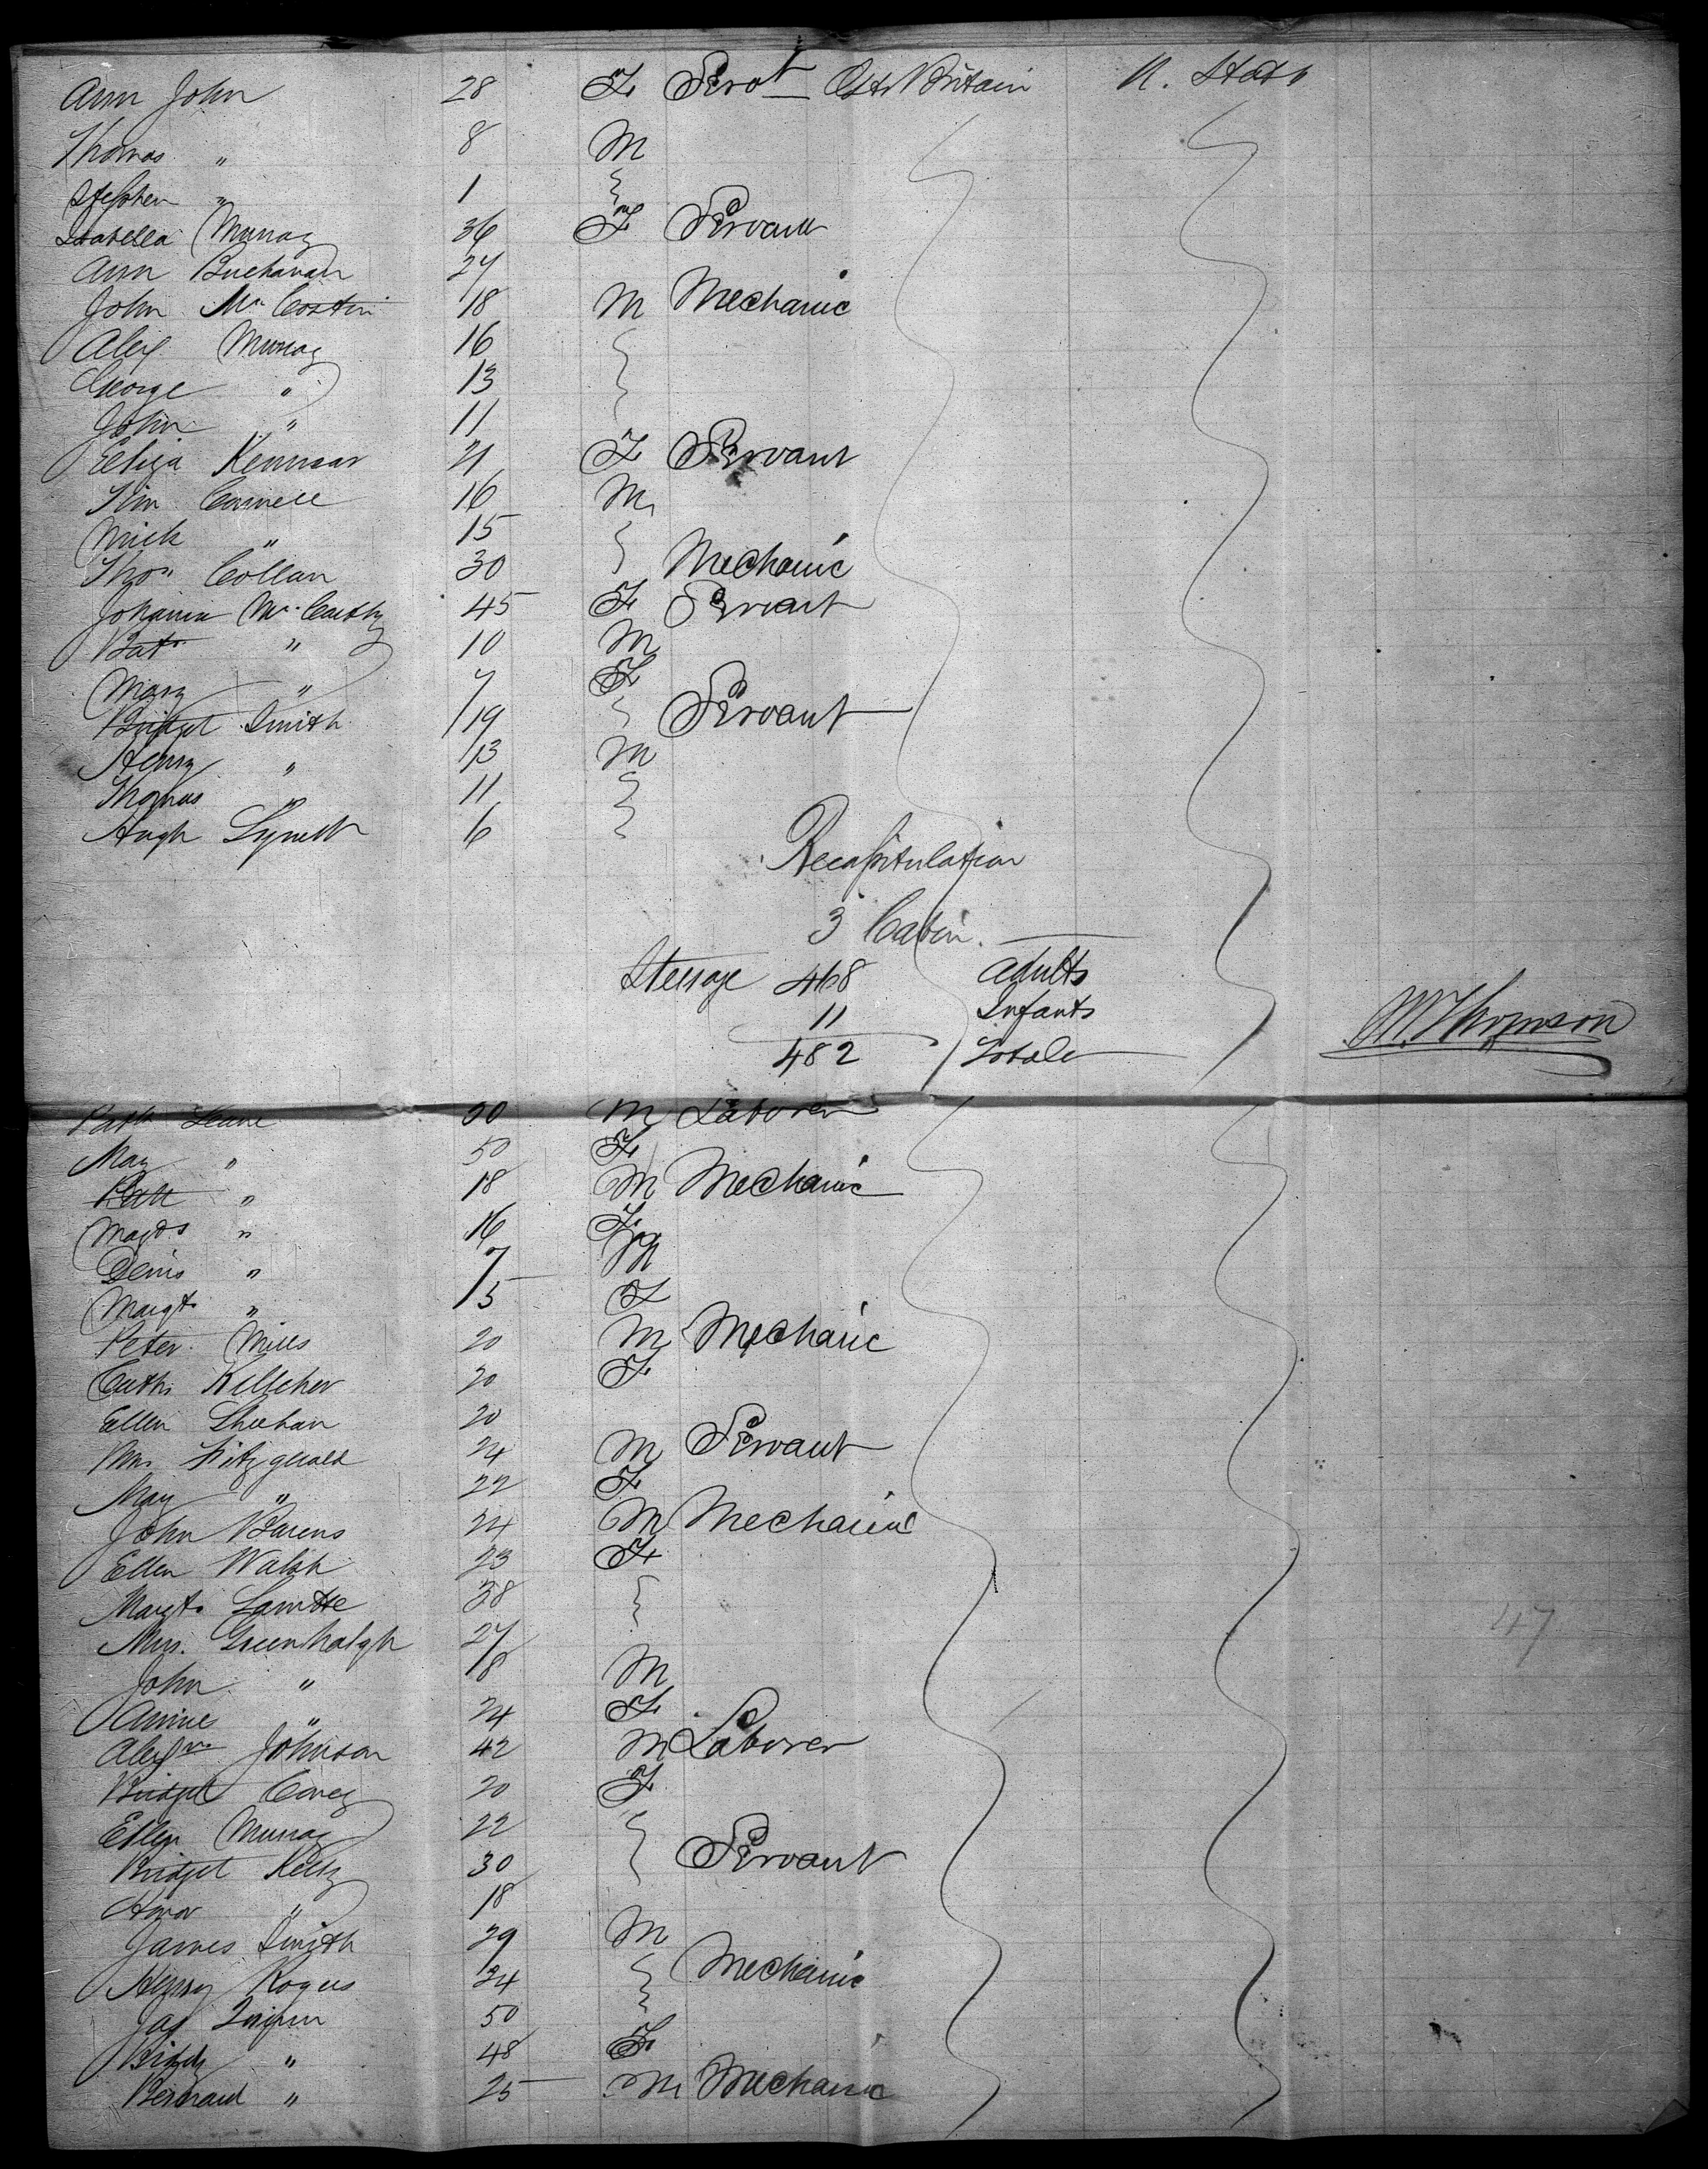 Ann John 28 F Servt Gt. Britain U. States
Thomas " 8 M
Stephen " 1
Isabella Murray 36 F Servant
Ann Buchanan 27
John Mc Costin 18 M Mechanic
Alex Murray 16
George " 13
John " 11
Eliza 21 F Servant
Tim Connell 16 M
Mick " 15
Thos Collan 30 Mechanic
Johanna Mc Carthy 45 F Servant
Batt " 10 M
Mary " 7 F
Bridget Smith 19 Servant
Henry " 13 M
Thomas " 11
Hugh 6
Recapitulation
3 Cabin.
Steerage 468 Adults
11 Infants
482 Totale
W. Thomson
Patk Leane 50 M Laborer
May " 50 F
Patk " 18 M Mechanic
Magts " 16 F
Denis " 7 M
Margt. " 5 F
Peter Mills 20 M Mechanic
Cath. Kelleher 20 F
Ellen Sheehan 20
Wm. Fitzgerald 24 M Servant
May " 22 F
John Barens 24 M Mechanic
Ellen Walsh 23 F
Margt. 38
Mrs. Greenhalgh 27
John " 8 M
Annie " 24 F
Alexr. Johnson 42 M Laborer
Bridget Carey 20 F
Ellen Murray 22
Bridget Kelly 30 Servant
Honor " 18
James Smith 29 M
Henry Rogers 24 Mechanic
Jas 50
Biddy " 48 F
Bernard " 25 M Mechanic
47